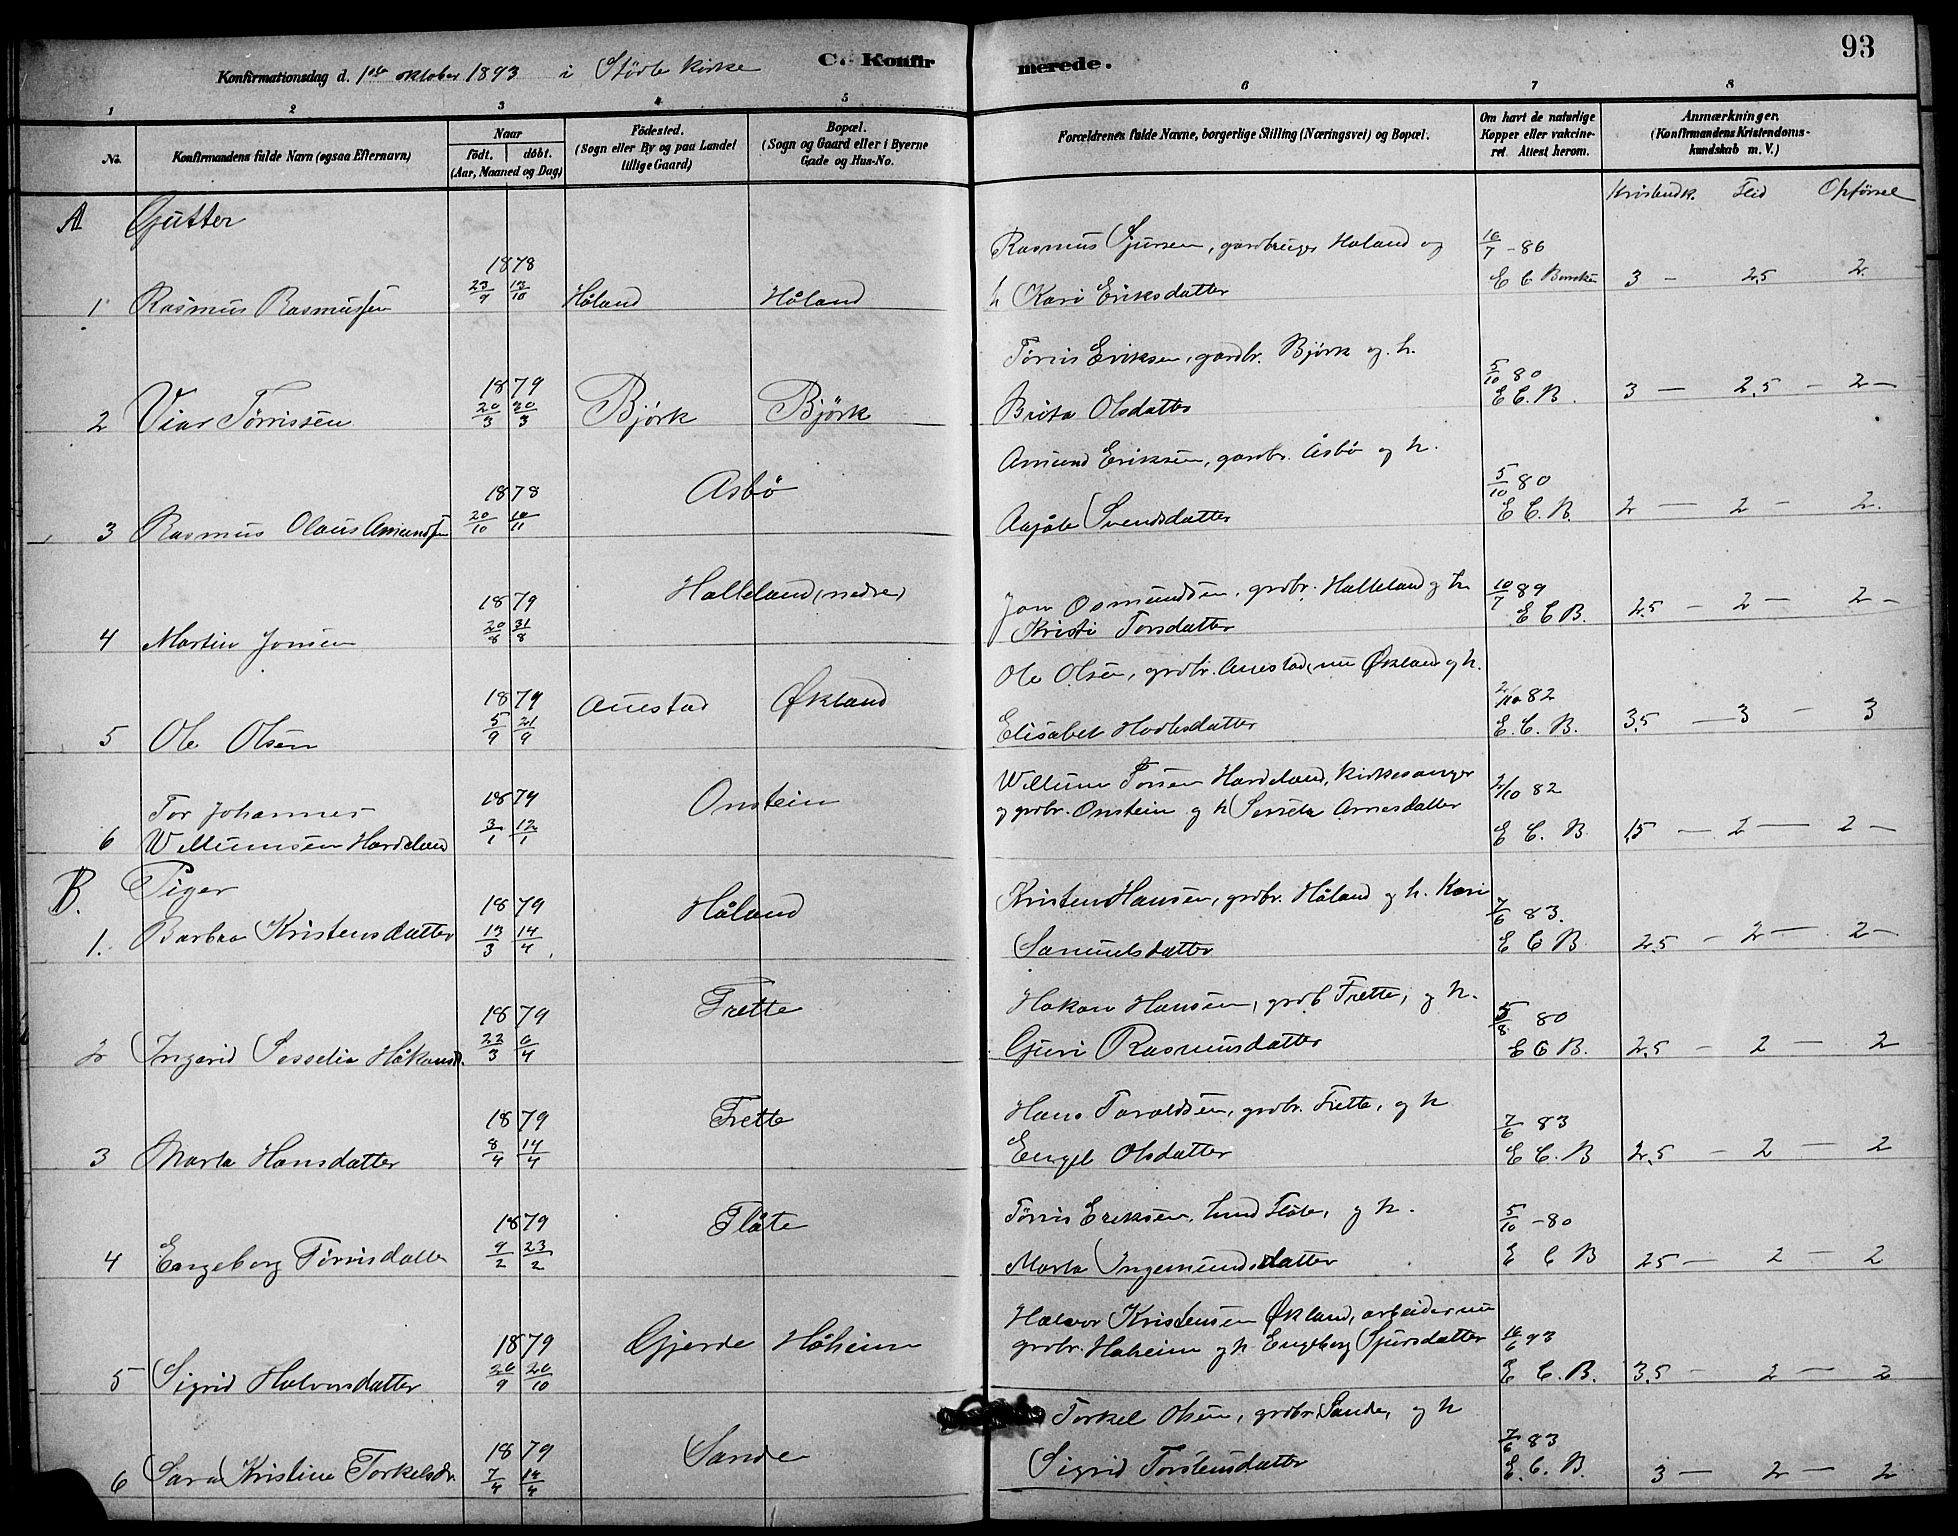 93
Konfirmationsdag d. 1ste oktober 1893 i Stødle Kirke C. Konfirmerede.
1 2 3 4 5 6 7 8
No. Konfirmandens fulde Navn (ogsaa Efternavn) Naar født. døbt. (Aar, Maaned og Dag) Födested. (Sogn eller By og paa Landet tillige Gaard) Bopæl. (Sogn og Gaard eller i Byerne Gade og Hus-No. Forældrenes fulde Navne, borgerlige Stilling (Næringsvei) og Bopæl. Om havt de naturlige Kopper eller vakcineret Attest herom. Anmærkninger. (Konfirmandens Kristendomskundskab m. V.)
Kristendk. Flid Opførsel
A Gutter
Rasmus Sjursen, gardbruger Håland og 16/7 - 86
1 Rasmus Rasmussen 1878 23/9 13/10 Håland Håland h Kari Eriksdatter E C 3 - 2,5 2
Tørris Eriksen, gardbr. Bjørk og h. 5/10 80
2 Viar Tørrissen 1879 20/3 30/3 Bjørk Bjørk Brita Olsdatter E C. B. 3 - 2,5 - 2 -
Amund Eriksen, gardbr. Åsbø og h. 5/10 80
3 Rasmus Olaus Amundsen 1878 20/10 10/11 Åsbø Svendsdatter E C. B. 2 - 2 - 2.
Jon Osmundsen, grdbr. Halleland og h. 10/7 89
4 Martin Jonsen 1879 20/8 31/8 Halleland (nedre) Kristi Torsdatter E C B. 2,5 - 2 - 2 -
Ole Olsen, grdbr. Auestad, nu Økland og h. 2/10 82
5 Ole Olsen 1879 5/9 21/9 Auestad Økland Elisabet Hovlesdatter E. C. B. 3,5 - 3 - 3
Tor Johannes Willumsen Hardeland, kirkesanger 2/10 82
6 Willumsen Hardeland 1879 3/1 12/1 Onstein og grdbr. Onstein og h Arnesdatter E C. B. 1,5 - 2 - 2 -
B. Piger
Kristen Hansen, grdbr. Håland og h. Kari 7/6 83.
1. Barbra Kristensdatter 1879 13/3 14/4 Håland Samuelsdatter E C B. 2,5 - 2 - 2 -
Håkon Hansen, grdb Frette, og h. 5/8 80
2 Ingerid Sesselia Håkonsd. 1879 22/3 6/4 Frette Guri Rasmusdatter E C B. 2,5 - 2 - 2
Hans Taraldsen, grdbr. Frette, og h 7/6 83
3 Marta Hansdatter 1879 8/4 14/4 Frette Engel Olsdatter E C. B 2,5 - 2 - 2
Tørris Eriksen, Flåte, og h. 5/10 - 80
4 Engeborg Tørrisdatter 1879 9/2 23/2 Flåte Marta Ingemundsdatter E C B 2,5 - 2 - 2
Halvor Kristensen Økland, arbeider nu
grdbr. Håheim og h Engeborg Sjursdatter 16/6 93
5 Sigrid Halvorsdatter 1879 20/9 20/10 Gjerde Håheim E C. B. 3,5 - 2 - 2
Torkel Olsen, grdbr. Sande, og h 7/6 83
6 Sara Kristine Torkelsdr. 1879 7/4 14/4 Sande Sigrid Torstensdatter E. C. B. 3 - 2 - 2